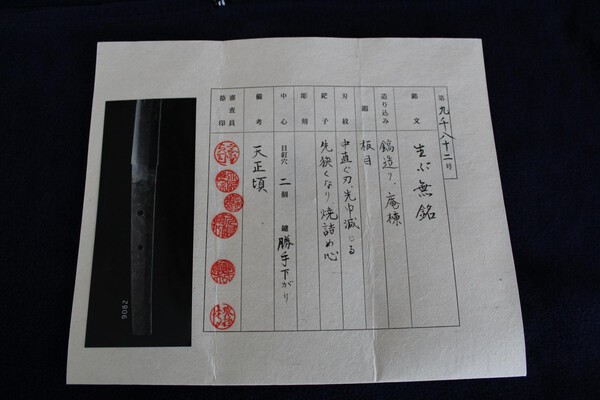 第九千八十二号
銘文 生ぶ無銘
造り込み 鎬造り、庵棟
鍛 板目
刃紋 中直ぐ刃、先巾減じる
鋩子 先狭くなり焼詰め心
彫刻
中心 目釘穴 二個 鑢 勝手下がり
備考 天正頃
審査員
捺印
9082